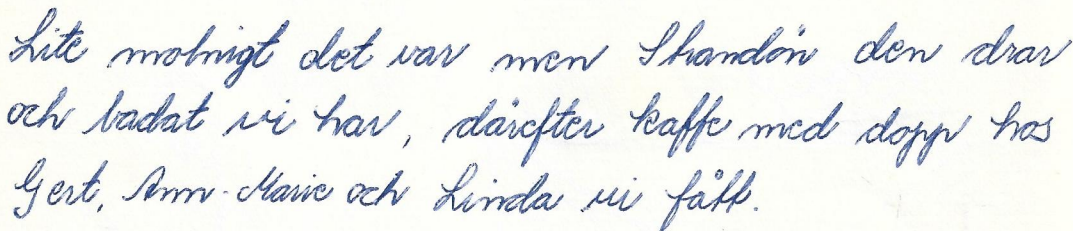 Lite molnigt det var men Skandön den drar
och badat vi har, därefter kaffe med dopp hos
Gert, Ann-Marie och Linda vi fått.